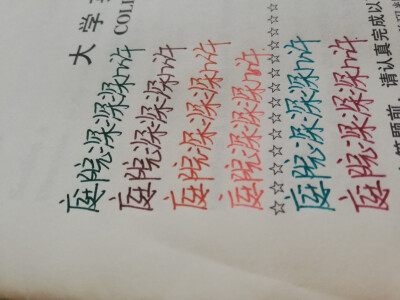 大学
COLL
庭院深深深几许
庭院深深深几许
庭院深深深几许
庭院深深深几许
庭院深深深几许
庭院深深深几许
答题前，请认真完成以